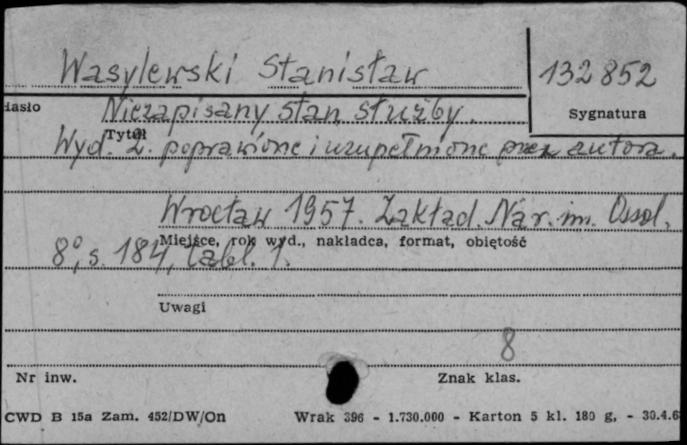 Wasylewski Stanisław
132852
Hasło
Niezapisany stan służby.
Sygnatura
Tytuł
Wyd. 2. poprawione i uzupełnione przez autora.
Wrocław 1957. Zakład. Nar. im. Ossol.
Miejsce, rok wyd., nakładca, format, objętość
8°, s. 184, tabl. 1.
Uwagi
8
Nr inw.
Znak klas.
CWD B 15a Zam. 452/DW/On Wrak 396 - 1.730.000 - Karton 5 kl. 180 g, - 30.4.6